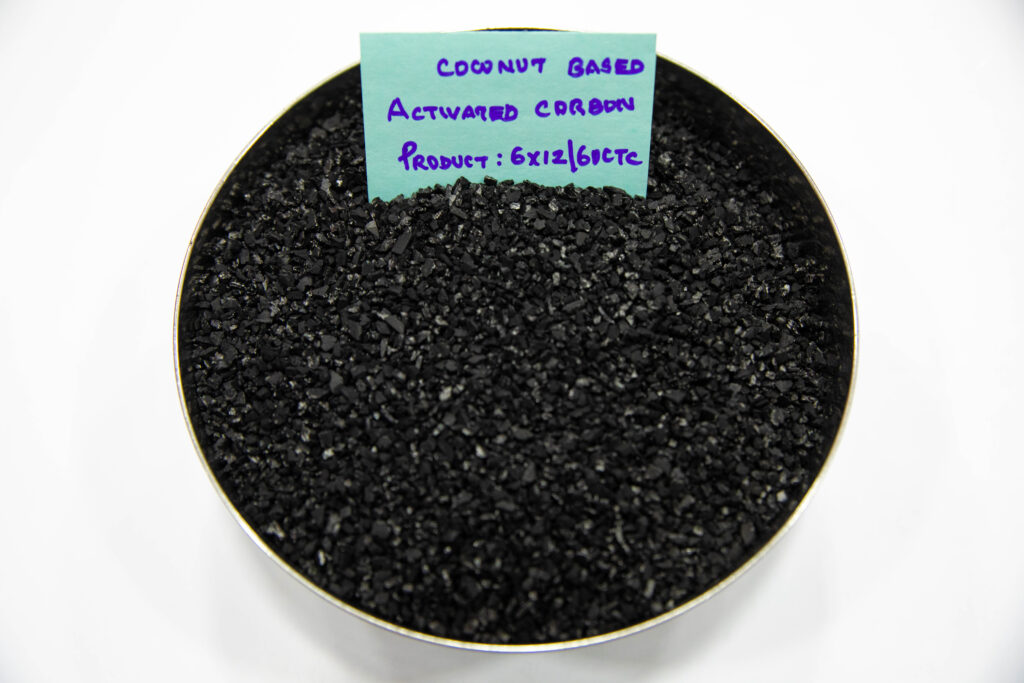 COCONUT BASED
ACTIVATED CARBON
PRODUCT: 6X12/60CTC